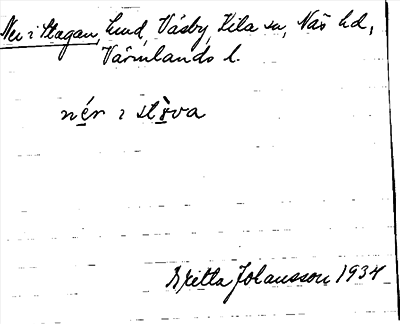 Ner i Stagan, hmd, Vasby, Kila sn, Näs hd,
Värmlands l.
nér i st
Britta Johansson 1934